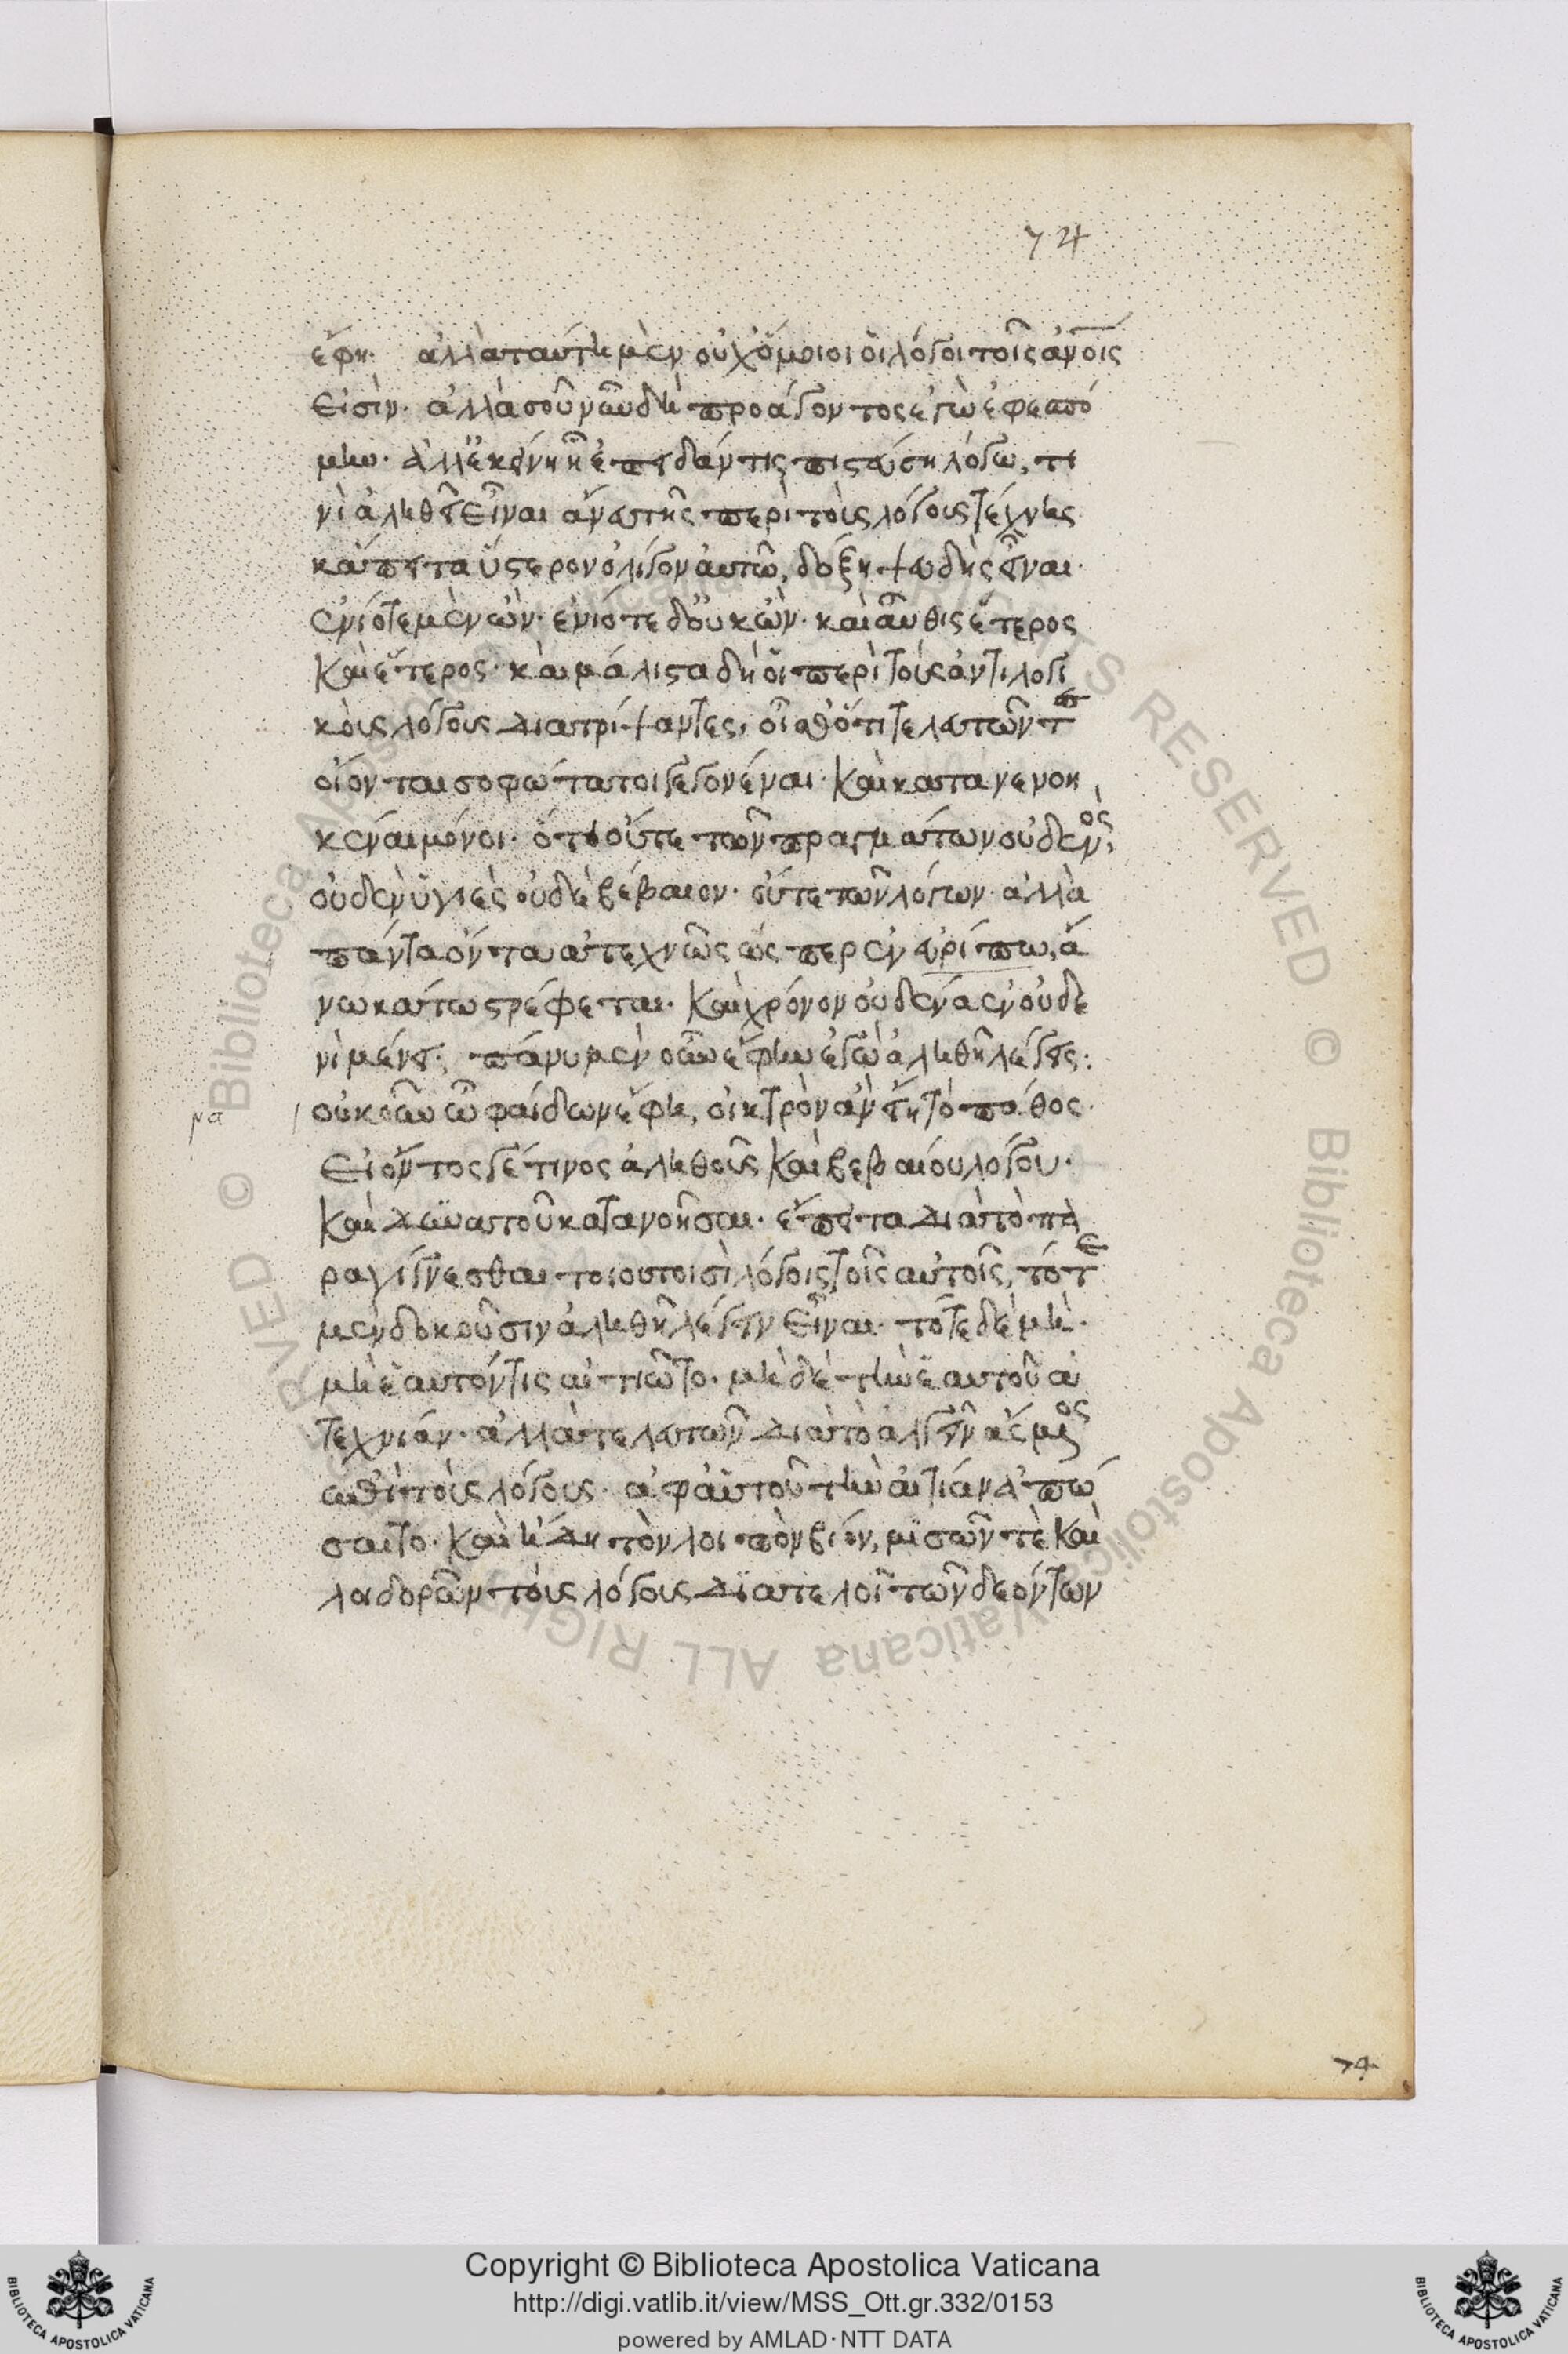 74
ἔφη. ἀλλὰ ταύτη μὲν οὐχ ὅμοιοι οἱ λόγοι τοῖς ἀνοις
εἰσὶν. ἀλλὰ σοῦ νῦν δὴ προάγοντος ἐγὼ ἐφεσπό
μην. ἀλλ' ἐκείνη ᾗ ἐπειδάν τις πιστεύση λόγω, τι
νὶ ἀληθεῖ εἶναι ἄνευ τῆς περὶ τοὺς λόγους τέχνης
κἄπειτα ὕστερον ὀλίγον αὐτῶ, δόξη ψευδὴς εἶναι.
ἐνίοτε μὲν ὢν. ἐνίοτε δ' οὐκ ὢν. καὶ αὖθις ἕτερος
καὶ ἕτερος. καὶ μάλιστα δὴ οἱ περὶ τοὺς ἀντιλογι
κοὺς λόγους διατρίψαντες, οἶσθ' ὅτι τελευτῶντ
οἴονται σοφώτατοι γεγονέναι. καὶ κατανενοη
κέναι μόνοι. ὅτι οὔτε τῶν πραγμάτων οὐδενός,
οὐδὲν ὑγιὲς οὐδὲ βέβαιον. οὔτε τῶν λόγων. ἀλλὰ
πάντα ὄντα ἀτεχνῶς ὥς περ ἐν εὐρίπω, ἄ
νω κάτω στρέφεται. καὶ χρόνον οὐδένα ἐν οὐδε
νὶ μένει. πάνυ μὲν οὖν ἔφην ἐγὼ ἀληθῆ λέγεις:
μα οὐκοῦν ὦ φαίδων ἔφη, οἰκτρὸν ἂν εἴη τὸ πάθος.
εἰ ὄντος γέ τινος ἀληθοῦς καὶ βεβαίου λόγου.
καὶ δυνατοῦ κατανοῆσαι. ἔπειτα διὰ τὸ πα
ραγίγνεσθαι τοιούτοισὶ λόγοις τοῖς αὐτοῖς, τότε
μὲν δοκοῦσιν ἀληθῆ λέγειν εἶναι. τότε δὲ μὴ.
μὴ ἑαυτόν τις αἰτιῶτο. μηδὲ τὴν ἑαυτοῦ ἀ
τεχνιάν. ἀλλὰ τελευτῶν διὰ τὸ ἀλγεῖν ἄσμενος
ἐπὶ τοὺς λόγους. ἀφ' αὑτοῦ τὴν αἰτίαν ἀπώ
σαιτο. καὶ ἤδη τὸν λοιπὸν βίον, μισῶν τὲ καὶ
λοιδορῶν τοὺς λόγους διατελοῖ τῶν δε ὄντων
74
© Biblioteca Apostolica Vaticana ALL RIGHTS RESERVED © Biblioteca Apostolica Vaticana ALL RIGHTS RESERVED
Copyright © Biblioteca Apostolica Vaticana
http://digi.vatlib.it/view/MSS_Ott.gr.332/0153
powered by AMLAD·NTT DATA
BIBLIOTECA APOSTOLICA VATICANA
BIBLIOTECA APOSTOLICA VATICANA